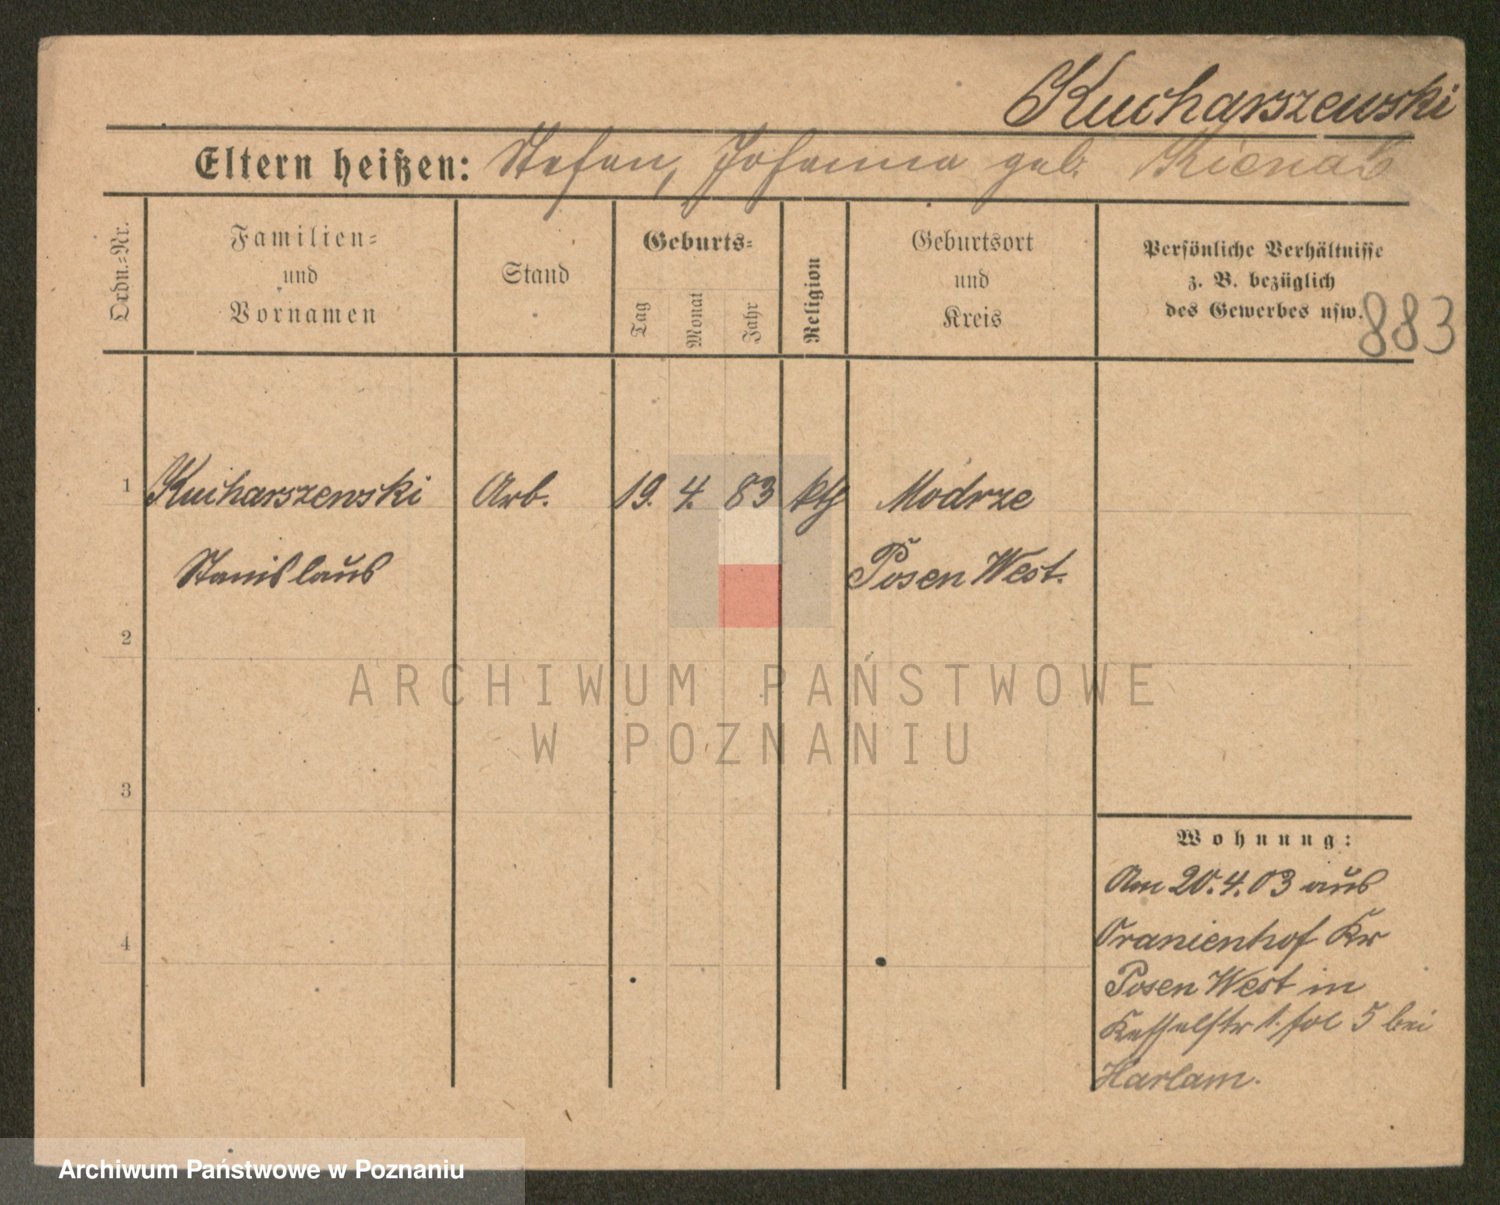 Kucharszewski
Eltern heißen: Stefan, Johanna geb.
Ordn.-Nr.
Familien-
und
Vornamen
Stand
Geburts-
Tag
Monat
Jahr
Religion
Geburtsort
und
Kreis
Persönliche Verhältnisse
z. B. bezüglich
des Gewerbes usw.
883
1 Kucharszewski Arb. 19. 4. 83 kth Modrze
Stanislaus Posen West.
2
ARCHIWUM PAŃSTWOWE
W POZNANIU
3
Wohnung:
Am 20.4.03 aus
4 Oranienhof Kr
Posen West in
Kesselstr 1. fol 5 bei
Harlam.
Archiwum Państwowe w Poznaniu